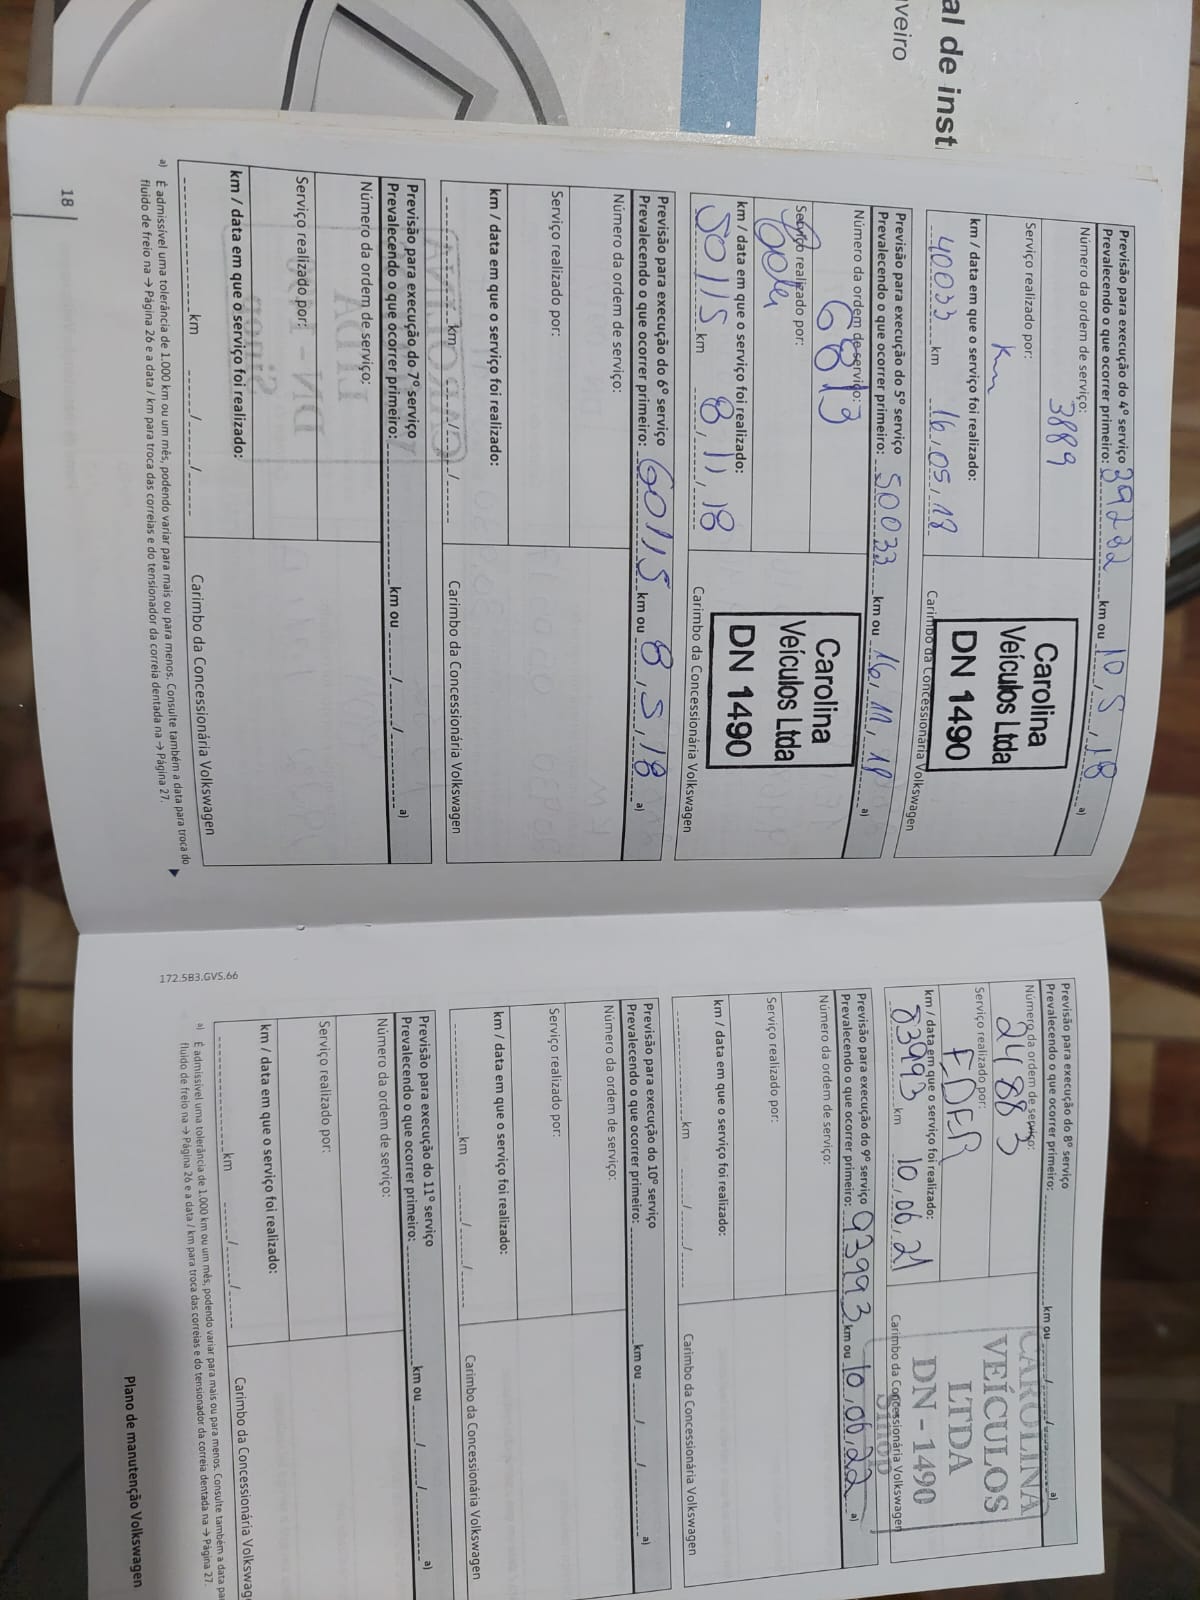 al de inst
veiro
Previsão para execução do 4º serviço
Prevalecendo o que ocorrer primeiro: 39282 km ou 10/5/18 a)
Número da ordem de serviço:
3889
Serviço realizado por:
km / data em que o serviço foi realizado:
40033 km 16/05/18
Carolina
Veículos Ltda
DN 1490
Carimbo da Concessionária Volkswagen
Previsão para execução do 5º serviço
Prevalecendo o que ocorrer primeiro: 50033 km ou 16/11/18 a)
Número da ordem de serviço:
6813
Serviço realizado por:
km / data em que o serviço foi realizado:
50115 km 8/11/18
Carolina
Veículos Ltda
DN 1490
Carimbo da Concessionária Volkswagen
Previsão para execução do 6º serviço
Prevalecendo o que ocorrer primeiro: 60115 km ou 8/5/18 a)
Número da ordem de serviço:
Serviço realizado por:
km / data em que o serviço foi realizado:
km / /
Carimbo da Concessionária Volkswagen
Previsão para execução do 7º serviço
Prevalecendo o que ocorrer primeiro: km ou / / a)
Número da ordem de serviço:
Serviço realizado por:
km / data em que o serviço foi realizado:
km / /
Carimbo da Concessionária Volkswagen
a) É admissível uma tolerância de 1.000 km ou um mês, podendo variar para mais ou para menos. Consulte também a data para troca do
fluido de freio na → Página 26 e a data / km para troca das correias e do tensionador da correia dentada na → Página 27.
18
Previsão para execução do 8º serviço
Prevalecendo o que ocorrer primeiro: km ou / / a)
Número da ordem de serviço:
24883
Serviço realizado por:
EDER
km / data em que o serviço foi realizado:
83993 km 10/06/21
CAROLINA
VEÍCULOS
LTDA
DN - 1490
Sinop
Carimbo da Concessionária Volkswagen
Previsão para execução do 9º serviço
Prevalecendo o que ocorrer primeiro: 93993 km ou 10/06/22 a)
Número da ordem de serviço:
Serviço realizado por:
km / data em que o serviço foi realizado:
km / /
Carimbo da Concessionária Volkswagen
Previsão para execução do 10º serviço
Prevalecendo o que ocorrer primeiro: km ou / / a)
Número da ordem de serviço:
Serviço realizado por:
km / data em que o serviço foi realizado:
km / /
Carimbo da Concessionária Volkswagen
Previsão para execução do 11º serviço
Prevalecendo o que ocorrer primeiro: km ou / / a)
Número da ordem de serviço:
Serviço realizado por:
km / data em que o serviço foi realizado:
km / /
Carimbo da Concessionária Volkswag
a) É admissível uma tolerância de 1.000 km ou um mês, podendo variar para mais ou para menos. Consulte também a data par
fluido de freio na → Página 26 e a data / km para troca das correias e do tensionador da correia dentada na → Página 27.
172.5B3.GVS.66
Plano de manutenção Volkswagen